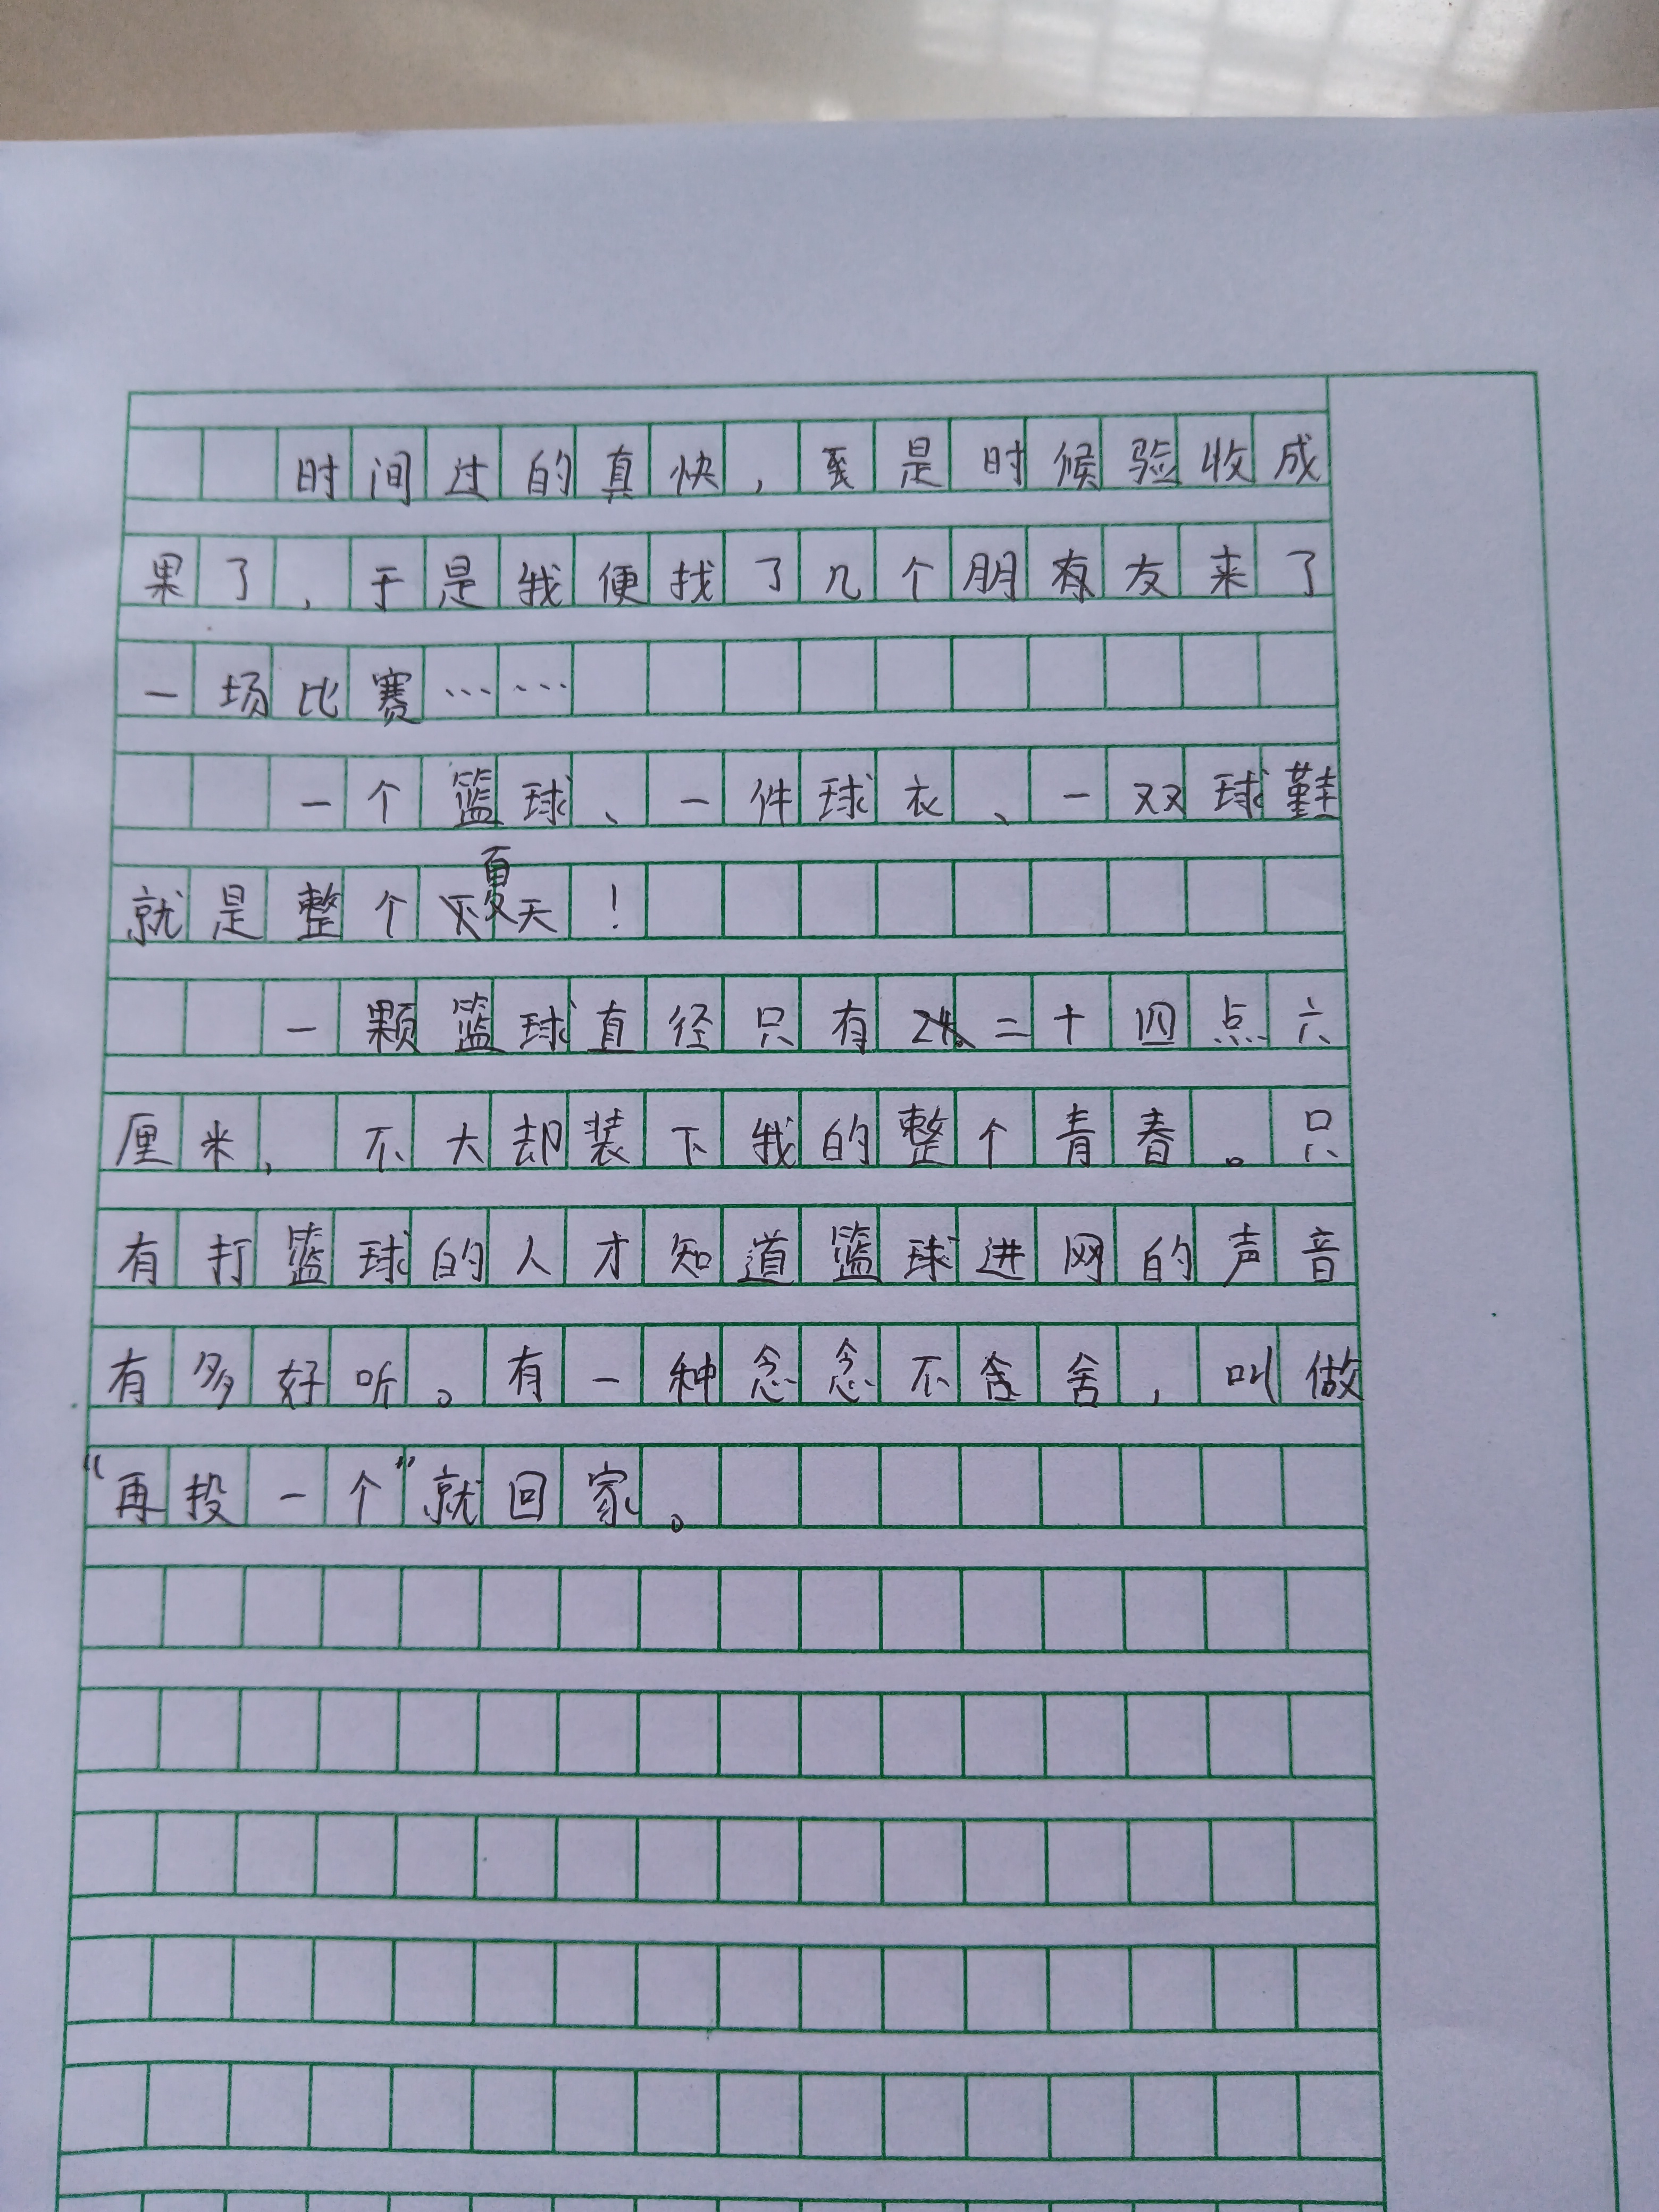 时间过的真快，是时候验收成
果了，于是我便找了几个朋友来了
一场比赛……
一个篮球、一件球衣、一双球鞋
就是整个夏天！
一颗篮球直径只有二十四点六
厘米，不大却装下我的整个青春。只
有打篮球的人才知道篮球进网的声音
有多好听。有一种念念不舍，叫做
“再投一个”就回家。